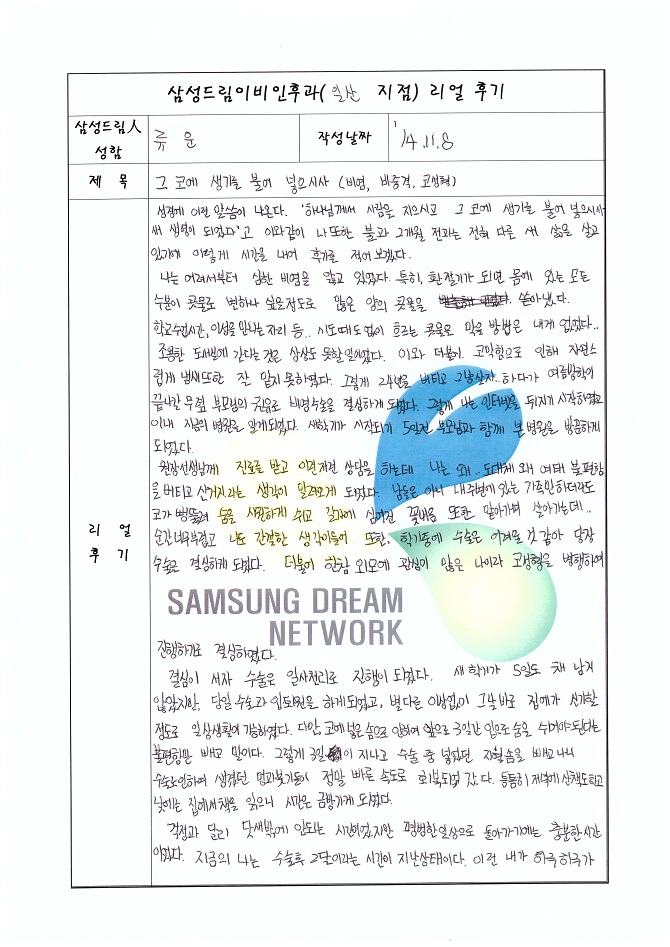 삼성드림이비인후과( 일산 지점) 리얼 후기
삼성드림人 성함
류 운
작성날짜
'14.11.8
제 목
그 코에 생기를 불어 넣으시사 (비염, 비중격, 코성형)
리 얼
후 기
성경에 이런 말씀이 나온다. '하나님께서 사람을 지으시고 그 코에 생기를 불어 넣으시사
새 생명이 되었다'고 이와같이 나 또한 불과 2개월 전과는 전혀 다른 새 삶을 살고
있기에 이렇게 시간을 내어 후기를 적어 보겠다.
나는 어려서부터 심한 비염을 앓고 있었다. 특히, 환절기가 되면 몸에 있는 모든
수분이 콧물로 변하나 싶을정도로 많은 양의 콧물을 쏟아냈다.
학교수업시간, 이성을 만나는 자리 등.. 시도때도 없이 흐르는 콧물을 막을 방법은 내게 없었다..
조용한 도서실에 간다는 것은 상상도 못할 일이었다. 이와 더불어 코막힘으로 인해 자연스
럽게 냄새또한 잘 맡지 못하였다. 그렇게 24년을 버티고 그냥살자.. 하다가 여름방학이
끝나갈 무렵 부모님의 권유로 비염수술을 결심하게 되었다. 그렇게 나는 인터넷을 뒤지기 시작하였고
이내 지금의 병원을 알게되었다. 새학기가 시작되기 5일전 부모님과 함께 본 병원을 방문하게
되었다.
원장선생님께 진료를 받고 이런저런 상담을 하는데 나는 왜.. 도대체 왜 여태 불편함
을 버티고 산거지라는 생각이 밀려오게 되었다. 남들은 아니 내 주변에 있는 가족만 하더라도
코가 뻥뚫려 숨을 시원하게 쉬고 길가에 심어진 꽃내음 또한 맡아가며 살아가는데..
순간 너무 부럽고 나도 간절한 생각이들어 또한, 학기중에 수술은 어려울 것 같아 당장
수술을 결심하게 되었다. 더불어 한참 외모에 관심이 많은 나이라 코성형을 병행하여
SAMSUNG DREAM
NETWORK
진행하기로 결심하였다.
결심이 서자 수술은 일사천리로 진행이 되었다. 새 학기가 5일도 채 남지
않았지만, 당일 수술과 입퇴원을 하게되었고, 별다른 이상없이 그날 바로 집에가 생활할
정도로 일상생활이 가능하였다. 다만, 코에 넣은 솜으로 인하여 앞으로 3일간 입으로 숨을 쉬어야 된다는
불편함만 빼고 말이다. 그렇게 3일이 지나고 수술 중 넣었던 지혈솜을 빼고나니
수술로인하여 생겼던 멍과붓기들이 정말 빠른 속도로 회복되어 갔다. 틈틈히 저녁에 산책도하고
낮에는 집에서 책을 읽으니 시간은 금방가게 되었다.
걱정과 달리 닷새밖에 안되는 시간이었지만 평범한 일상으로 돌아가기에는 충분한 시간
이었다. 지금의 나는 수술후 2달이라는 시간이 지난상태이다. 이런 내가 하루하루가